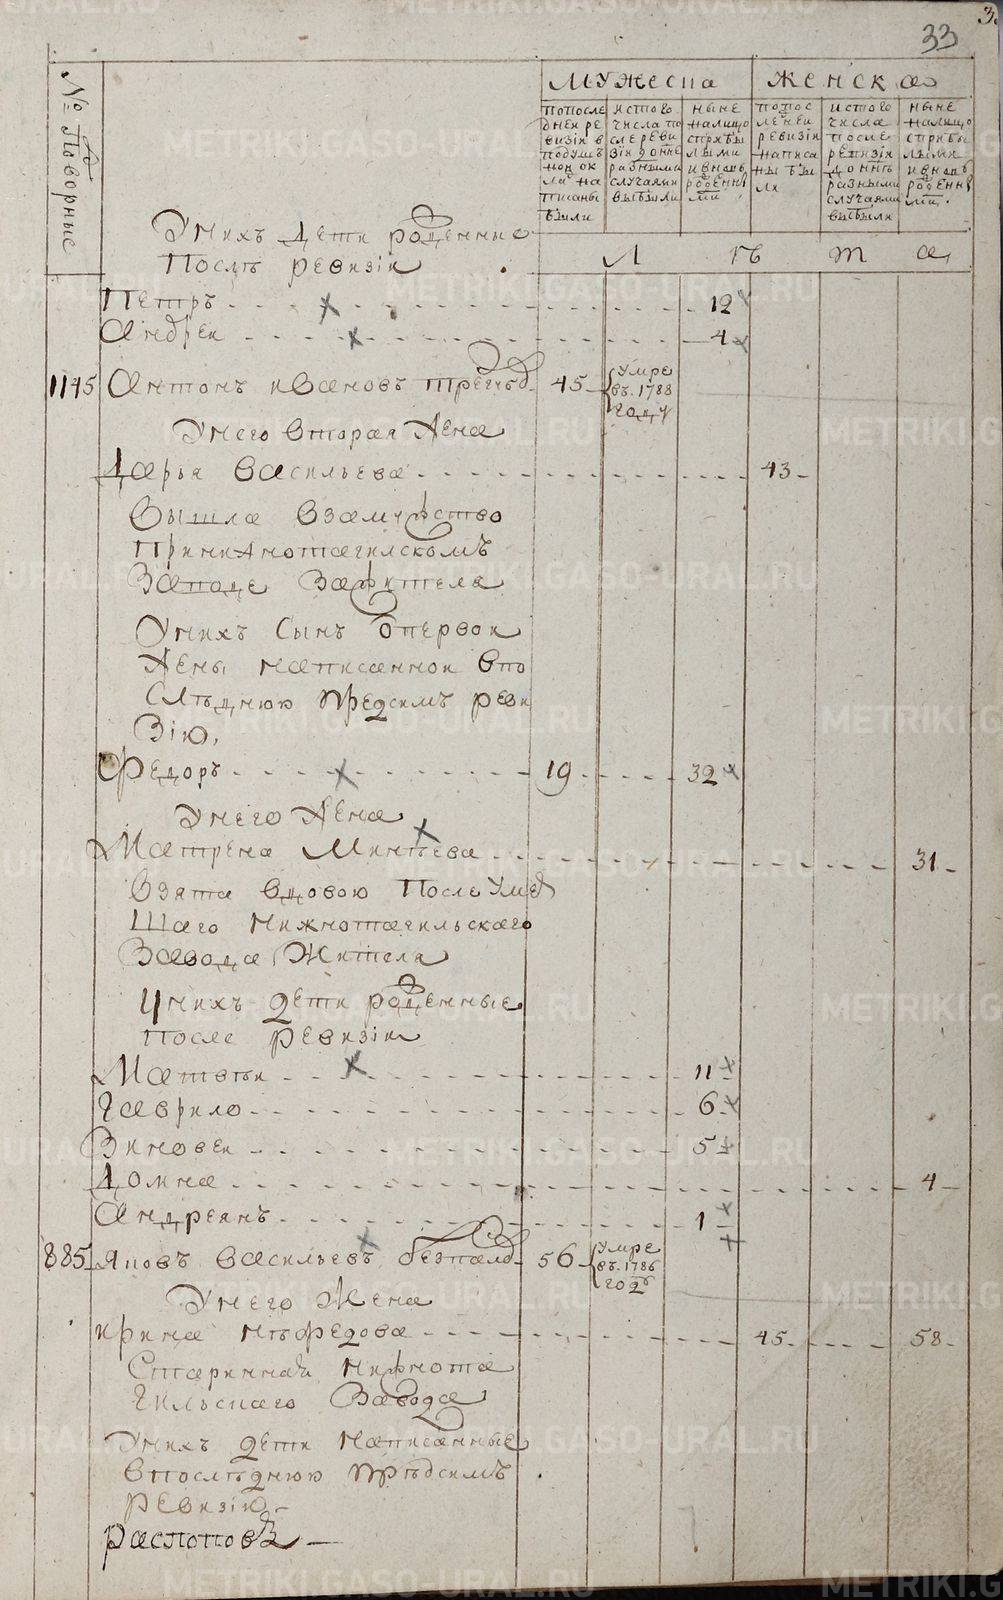 3
33
№ Подворные
МУЖЕСКА
ЖЕНСКА
попосле
дней ре
визiи в
подуш
ной ок
ла на
писаны
были
истого
числа по
слереви
зiи донне
разными
случаями
выбыли
ныне
налицо
сприбы
лыми
ивновь
рожденны
ми
попос
леней
ревизiи
написа
ны бы
ли
истого
числа
после
ревизiи
доннѣ
разными
случаями
выбыли
ныне
налицо
сприбы
лыми
ивновь
рожденны
ми
Л ѣ т а
Унихъ дети рожденные
послѣ ревизiи
Петръ 12
андреи 4
1145 антонъ ивановъ 45 умре
въ 1788
году
Унего вторая жена
дарья васильева 43
вышла взамужство
принижнотагилскомъ
Заводе Зажителя
Унихъ сынъ отпервои
жены написаннои впо
слѣднюю предсимъ реви
Зiю,
Федоръ 19 32
Унего жена
Матрена Минѣева 31
взята вдовою после умер
шаго нижнотагильскаго
Завода Жителя
Унихъ дети рожденные
после ревизiи
Матвѣи 11
Гаврило 6
Зиновеи 5
Домна 4
андреянъ 1
885 яковъ васильевъ 56 умре
въ 1786
годѣ
Унего Жена
ирина нѣфедова 45 58
Старинная нижнота
гильскаго Завода
Унихъ дети написанные
впослѣднюю прѣдсимъ
ревизiю